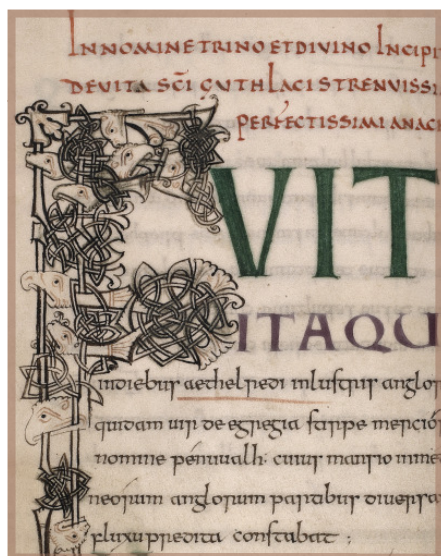 IN NOMINE TRINO ET DIVINO INCIPI
DE VITA SCI GUTHLACI STRENVISSI
PERFECTISSIMI ANAC
FVIT
ITAQU
indiebus aethelredi inlustris anglor
quidam uir de egregia stirpe merciór
nomine pénuualh: cuius mansio in me
neorum anglorum partibus diuersa
pluxu predita constabat ;